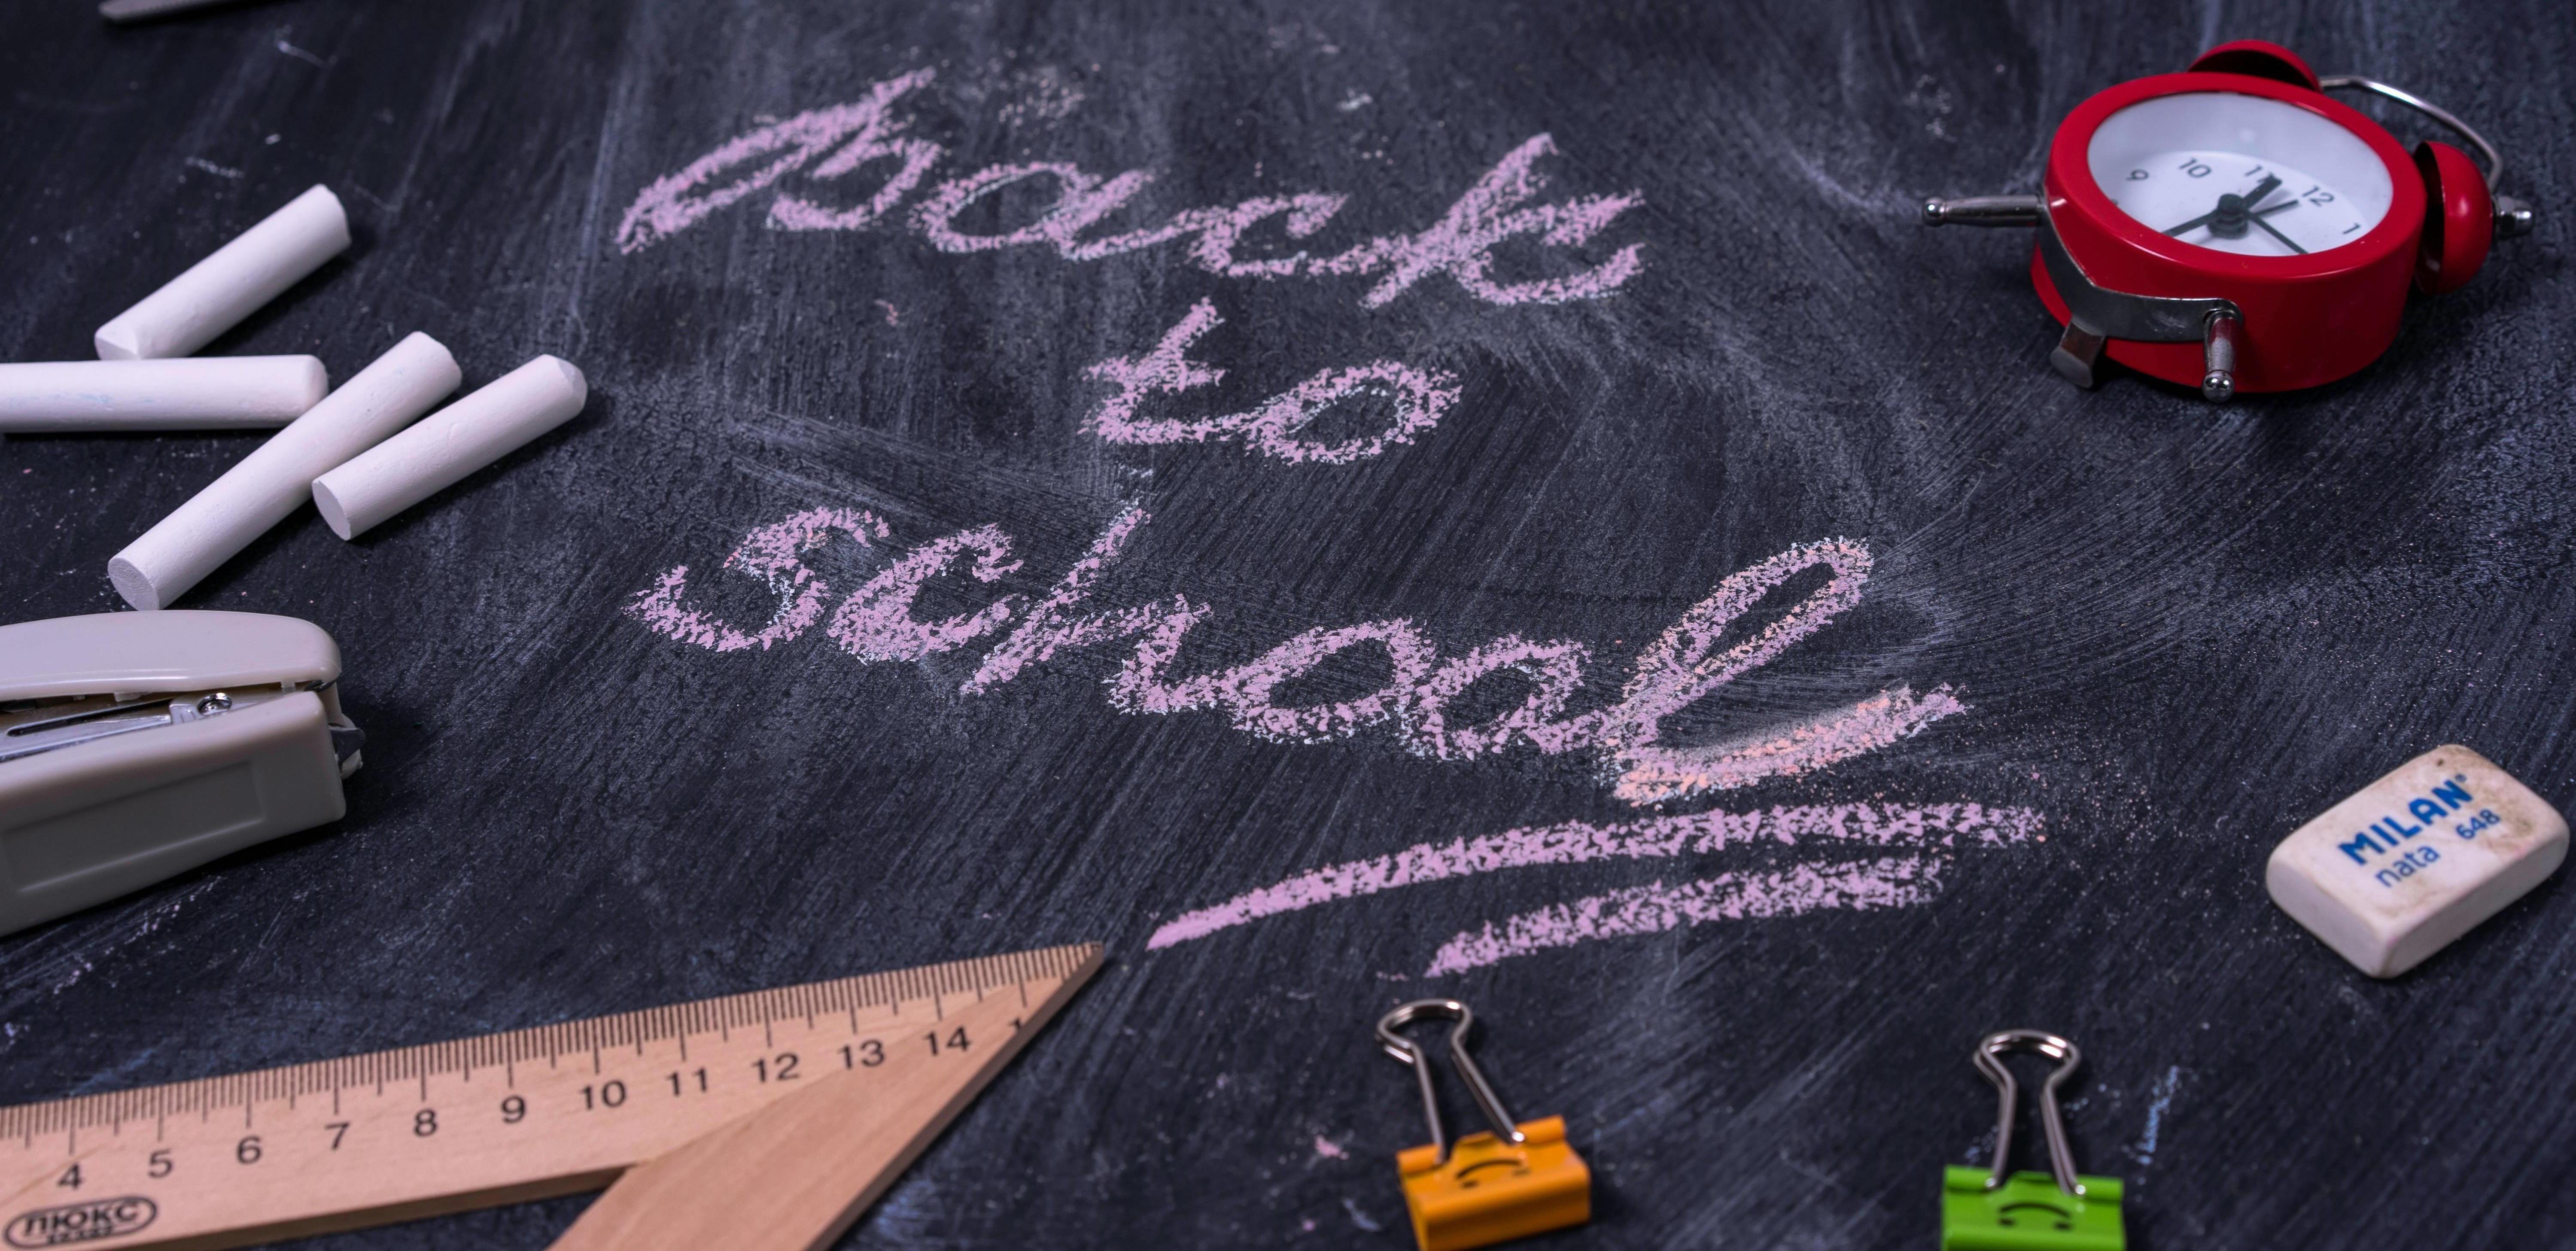 Back
to
school
9 10 11 12 1
MILAN®
648
nata
4 5 6 7 8 9 10 11 12 13 14
ЛЮКС